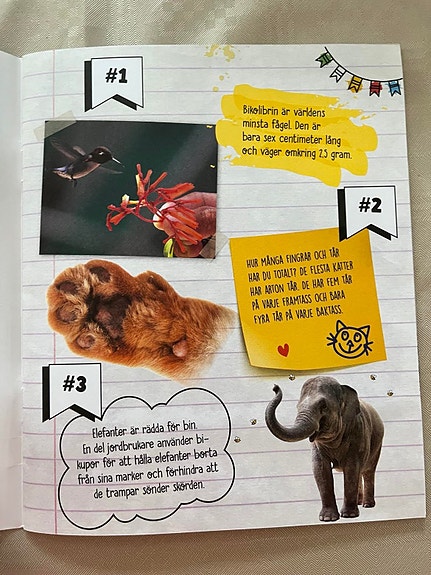 #1
Bikolibrin är världens
minsta fågel. Den är
bara sex centimeter lång
och väger omkring 2,5 gram.
#2
HUR MÅNGA FINGRAR OCH TÅR
HAR DU TOTALT? DE FLESTA KATTER
HAR ARTON TÅR. DE HAR FEM TÅR
PÅ VARJE FRAMTASS OCH BARA
FYRA TÅR PÅ VARJE BAKTASS.
#3
Elefanter är rädda för bin.
En del jordbrukare använder bi-
kupor för att hålla elefanter borta
från sina marker och förhindra att
de trampar sönder skörden.